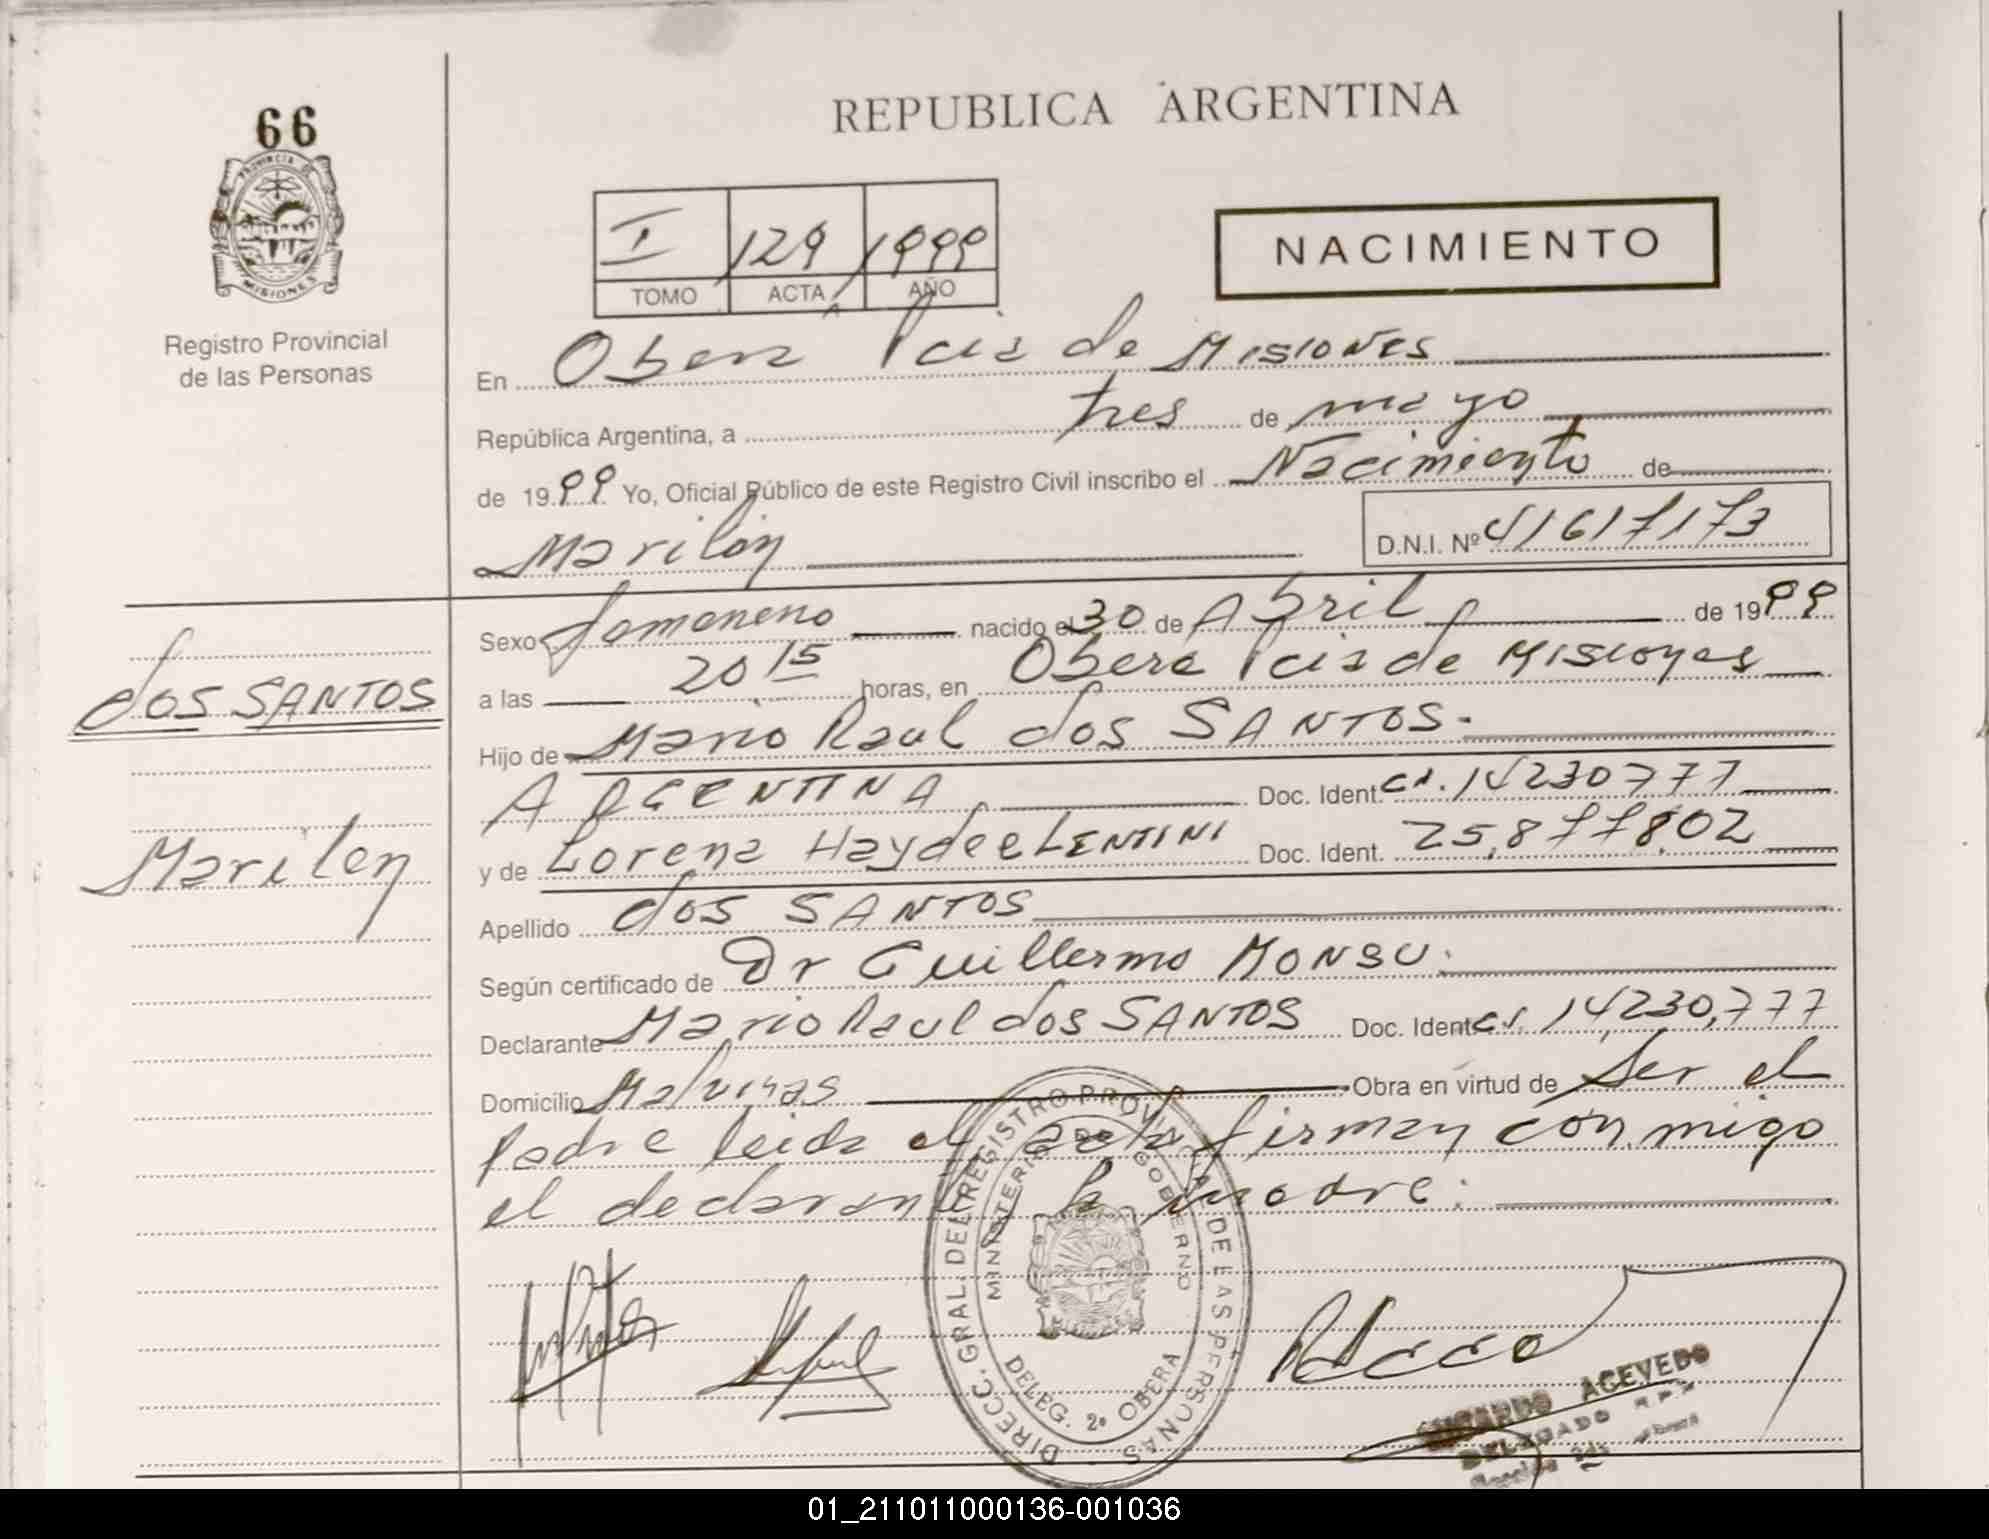 66
PROVINCIA DE
MISIONES
Registro Provincial
de las Personas
REPUBLICA ARGENTINA
I 129 1999
TOMO ACTA AÑO
NACIMIENTO
En Obera Pcia de Misiones
República Argentina, a tres de mayo
de 1999 Yo, Oficial Público de este Registro Civil inscribo el Nacimiento de
Marilen
D.N.I. Nº 41617173
Sexo femenino nacido el 30 de Abril de 1999
a las 20 15 horas, en Obera Pcia de Misiones
Hijo de Mario Raul dos SANTOS.
ARGENTINA Doc. Ident. 14230777
y de Lorena Haydee LENTINI Doc. Ident. 25,877802
Apellido dos SANTOS
Según certificado de Dr Guillermo MONSU.
Declarante Mario Raul dos SANTOS Doc. Ident. 14,230,777
Domicilio Malvinas Obra en virtud de Ser el
Padre leida el acta firman conmigo
el declarante y la madre.
dos SANTOS
Marilen
DIRECC. GRAL. DEL REGISTRO PROVINCIAL DE LAS PERSONAS
MINISTERIO DE GOBIERNO
DELEG. 2º OBERA
ACEVEDO
DELEGADO
01_211011000136-001036